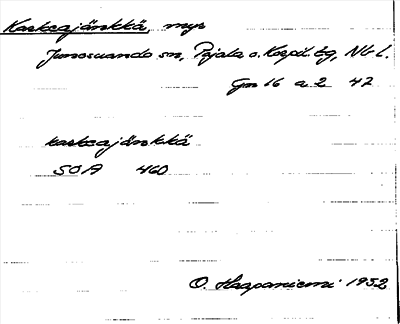 Karkeajänkkä, myr
Junosuando sn, Pajala o. Korpil. tg, Nb l.
Gm 16 a 2 42
karkeajänkkä
SOA 460
O. Haapaniemi 1952